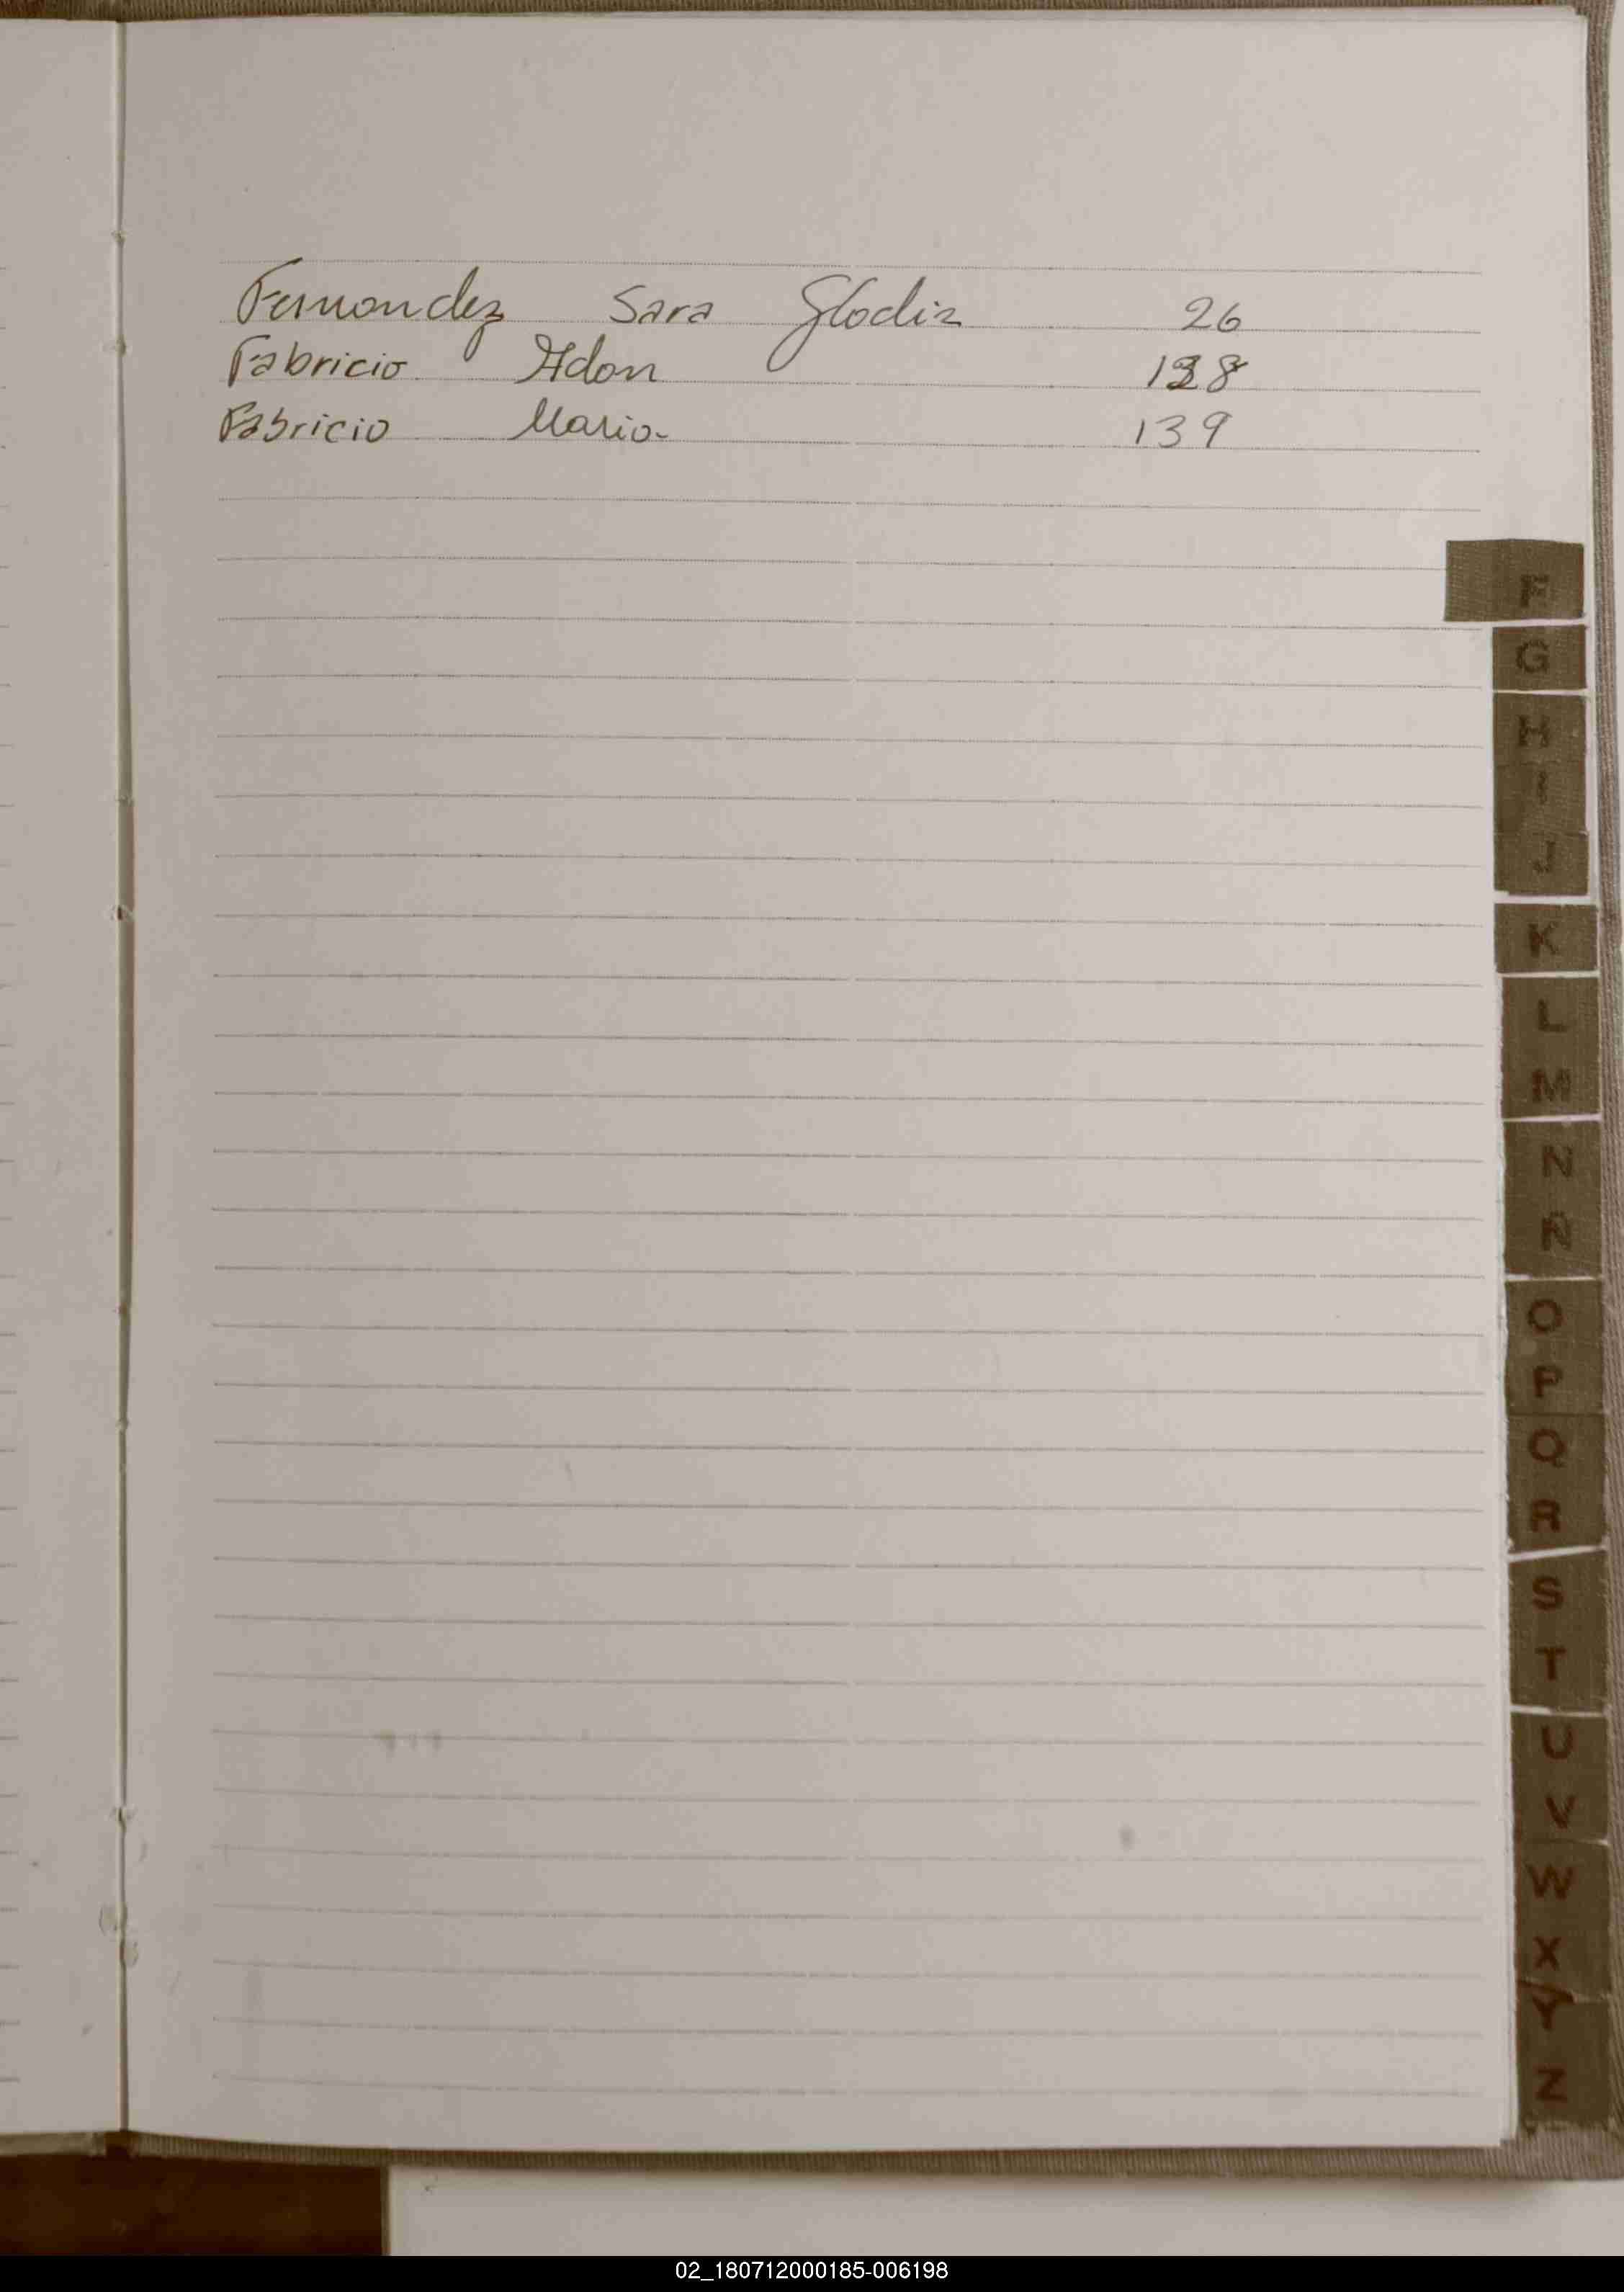 Fernandez Sara Glodis 26
Fabricio Adan 138
Fabricio Mario 139
F
G
H
I
J
K
L
M
N
Ñ
O
P
Q
R
S
T
U
V
W
X
Y
Z
02_180712000185-006198